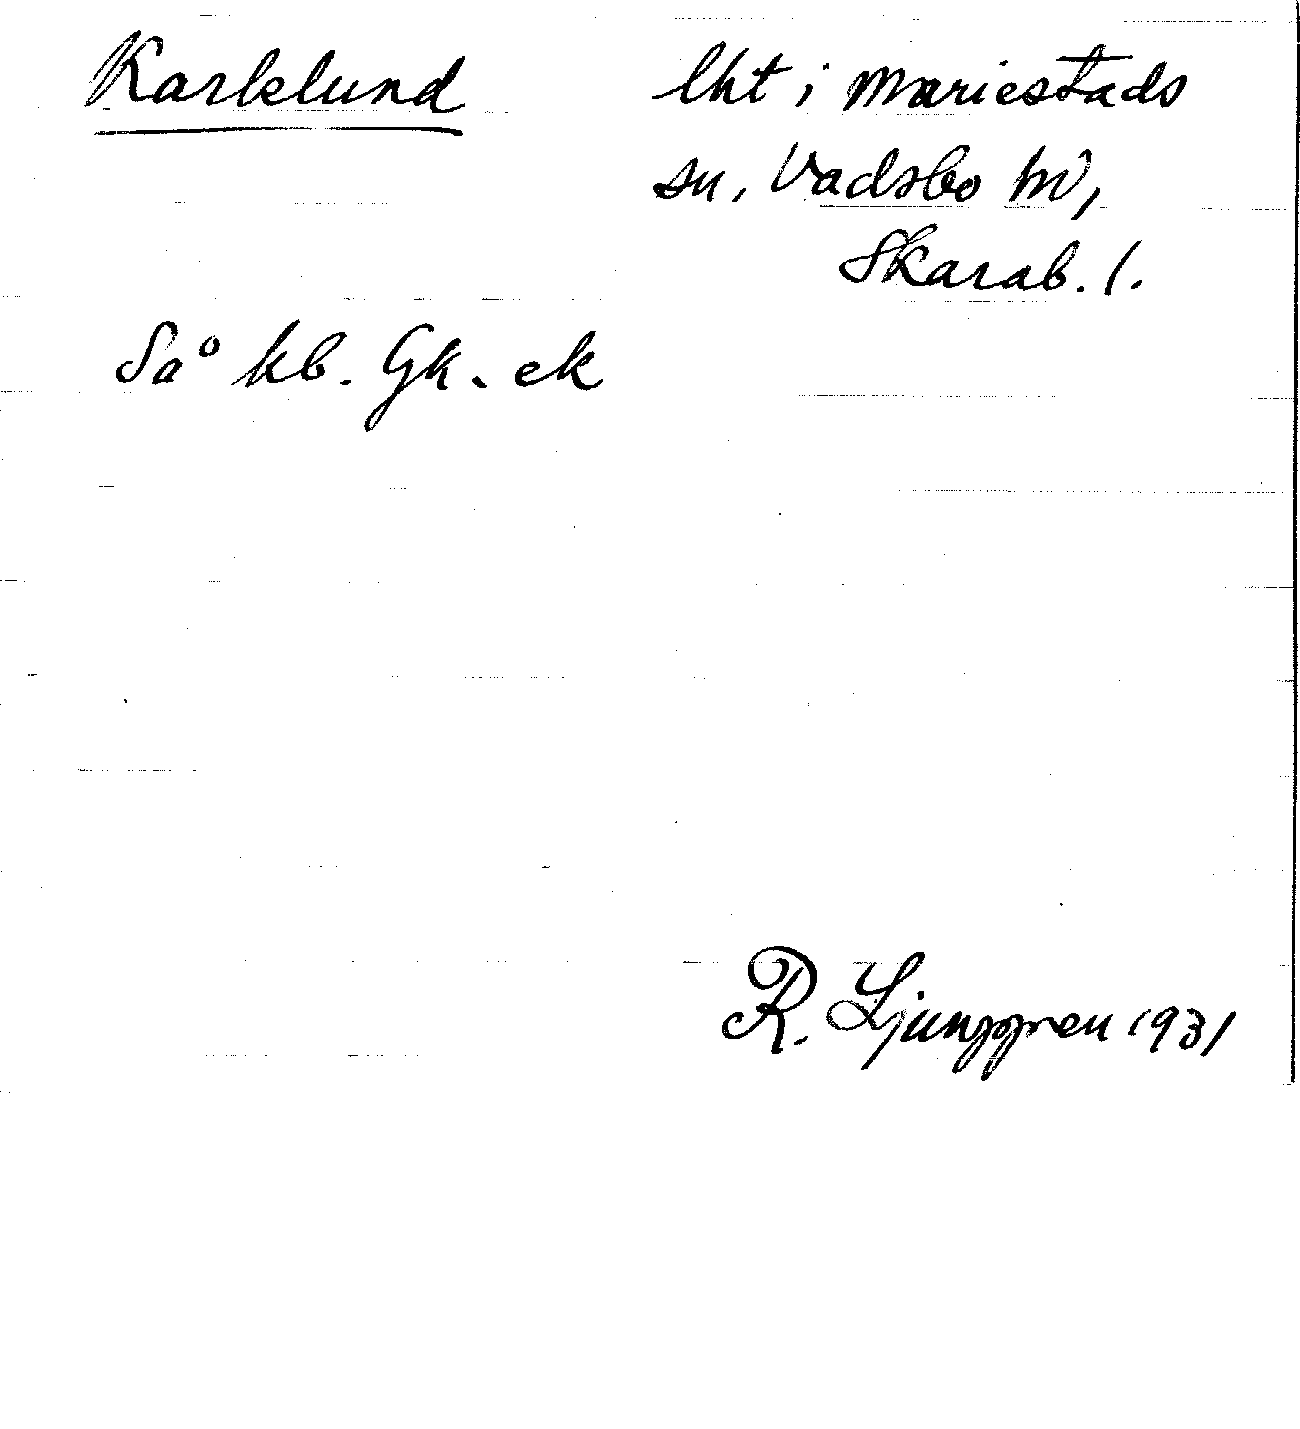 Karlslund
lht i Mariestads
sn, Vadsbo hd,
Skarab. l.
Så kb. Gk. ek
R. Ljunggren 1931